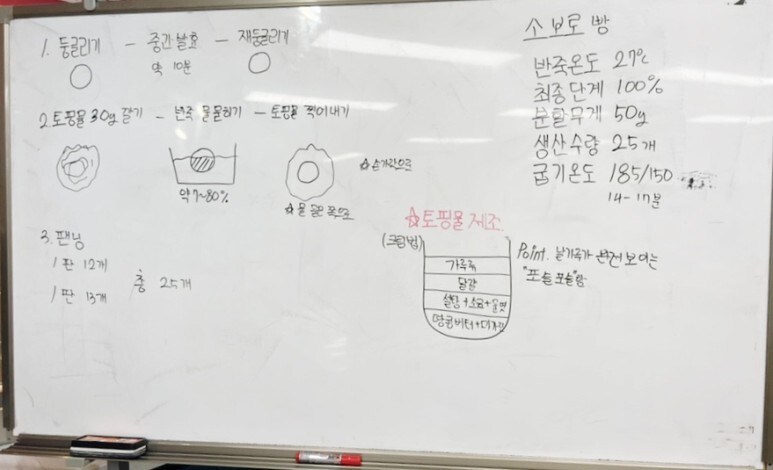 소보로빵
반죽온도 27℃
최종단계 100%
분할무게 50g
생산수량 25개
굽기온도 185/150
14-17분
1. 둥글리기 - 중간발효 - 재둥글리기
약 10분
2. 토핑물 30g 깔기 - 반죽 물묻히기 - 토핑물 찍어내기
약 7~80%
☆손가락으로
☆물 묻은 쪽으로
3. 팬닝
1판 12개
1판 13개
총 25개
☆토핑물 제조
(크림법)
가루류
달걀
설탕+소금+물엿
땅콩버터+마가린
Point. 날가루가 완전 보이는
"포슬포슬"함